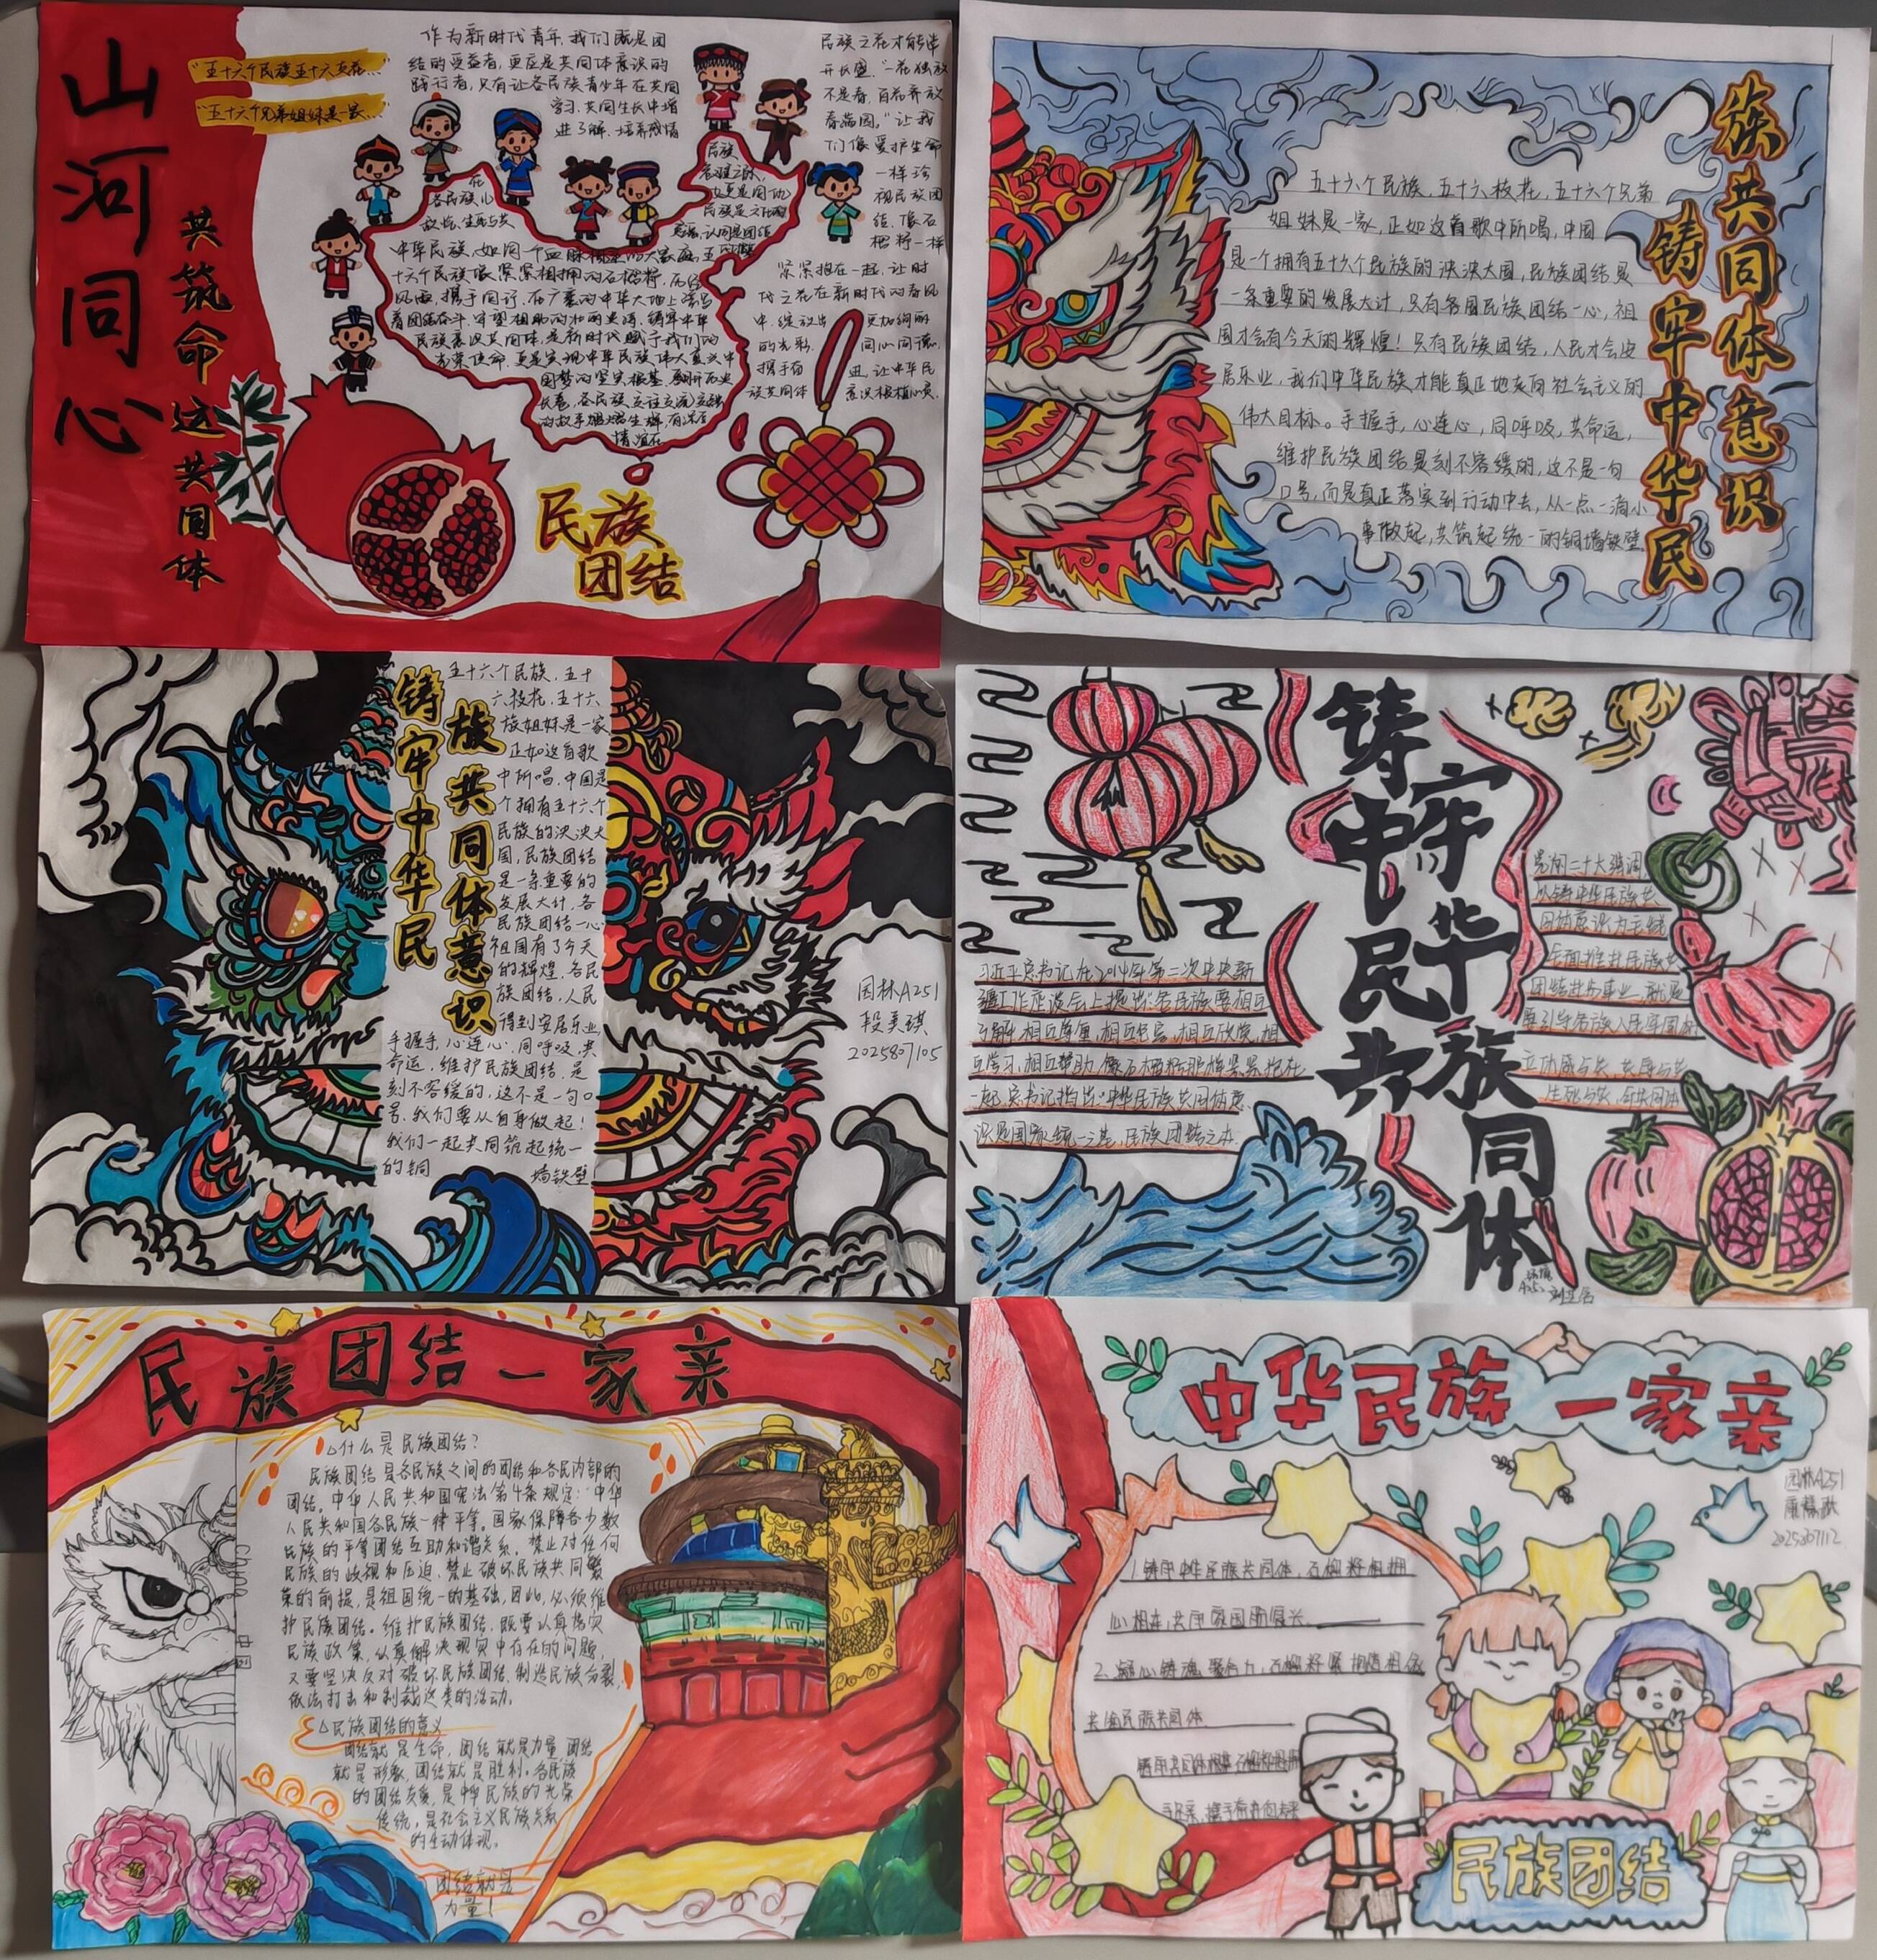 山河同心
共筑命这共同体
"五十六个民族五十六支花..."
"五十六个兄弟姐妹是一家..."
作为新时代青年，我们既是团
结的受益者，更应是共同体意识的
践行者，只有让各民族青少年在共同
学习、共同生长中增
进了解、培养感情
民族之花才能常
开长盛。"一花独放
不是春，百花齐放
春满园。"让我
们像爱护生命
一样珍
视民族团
结，像石
榴籽一样
紧紧抱在一起，让时
代之花在新时代的春风
中，绽放出 更加绚丽
的光彩。 同心同德，
携手奋 进，让中华民
族共同体 意识根植心灵
十六个民族像紧紧相拥的石榴籽，历经
风雨，携手同行，在广袤的中华大地上
着团结奋斗、守望相助的壮丽史诗，铸牢中华
民族意识共同体，是新时代赋予我们的
光荣使命，更是实现中华民族伟大复兴中
国梦的坚实根基。翻开历史
长卷，各民族交往交流交融
的故事熠熠生辉，有深厚
情谊在
民族
团结
铸牢中华民
族共同体意识
五十六个民族，五十六枝花，五十六个兄弟
姐妹是一家，正如这首歌中所唱，中国
是一个拥有五十六个民族的泱泱大国，民族团结是
一条重要的发展大计，只有各国民族团结一心，祖
国才会有今天的辉煌！只有民族团结，人民才会安
居乐业，我们中华民族才能真正地走向社会主义的
伟大目标。手握手，心连心，同呼吸，共命运，
维护民族团结是刻不容缓的，这不是一句
口号，而是真正落实到行动中去，从一点一滴小
事做起，共筑起统一的铜墙铁壁。
铸牢中华民
族共同体意识
五十六个民族，五十
六枝花，五十六
族姐妹是一家
正如这首歌
中所唱，中国是
个拥有五十六个
民族的泱泱大
国，民族团结
是一条重要的
发展大计，各
民族团结一心
祖国有了今天
的辉煌，各民
族团结，人民
得到安居乐业，
手握手，心连心，同呼吸，共
命运，维护民族团结，是
刻不容缓的，这不是一句口
号，我们要从自身做起！
我们一起共同筑起统一
的铜 墙铁壁！
园林A251
段美琪
2025807105
铸牢
中华
民族
共同
体
习近平总书记在2014年第二次中央新
疆工作座谈会上提出：各民族要相互
了解，相互尊重，相互包容，相互欣赏，相
互学习，相互帮助，像石榴籽那样紧紧抱在
一起，总书记指出：中华民族共同体意
识是国家统一之基，民族团结之本，
党的二十大强调，
以铸牢中华民族共
同体意识为主线
全面推进民族
团结进步事业，就是
要引导各族人民牢固树
立休戚与共，荣辱与共
生死与共，命共同体
民族团结一家亲
什么是民族团结？
民族团结是各民族之间的团结和各民内部的
团结。中华人民共和国宪法第4条规定：中华
人民共和国各民族一律平等。国家保障各少数
民族的平等团结互助和谐关系，禁止对任何
民族的歧视和压迫，禁止破坏民族共同繁
荣的前提，是祖国统一的基础，因此，必须维
护民族团结。维护民族团结，既要认真落实
民族政策，认真解决现实中存在的问题，
又要坚决反对破坏民族团结，制造民族分裂，
依法打击和制裁这类的活动。
民族团结的意义
团结就是生命，团结就是力量 团结
就是形象，团结就是胜利。各民族
的团结友爱，是中华民族的光荣
传统，是社会主义民族关系
的生动体现。
团结就是
力量！
China
中国
中华民族一家亲
园林A251
2025807112
1.铸牢中华民族共同体，石榴籽相拥
心相连，共守家国两复兴。
2.凝心铸魂聚合力，石榴籽紧相守相依
共谕民族共同体
手足亲，携手奋进向未来
民族团结